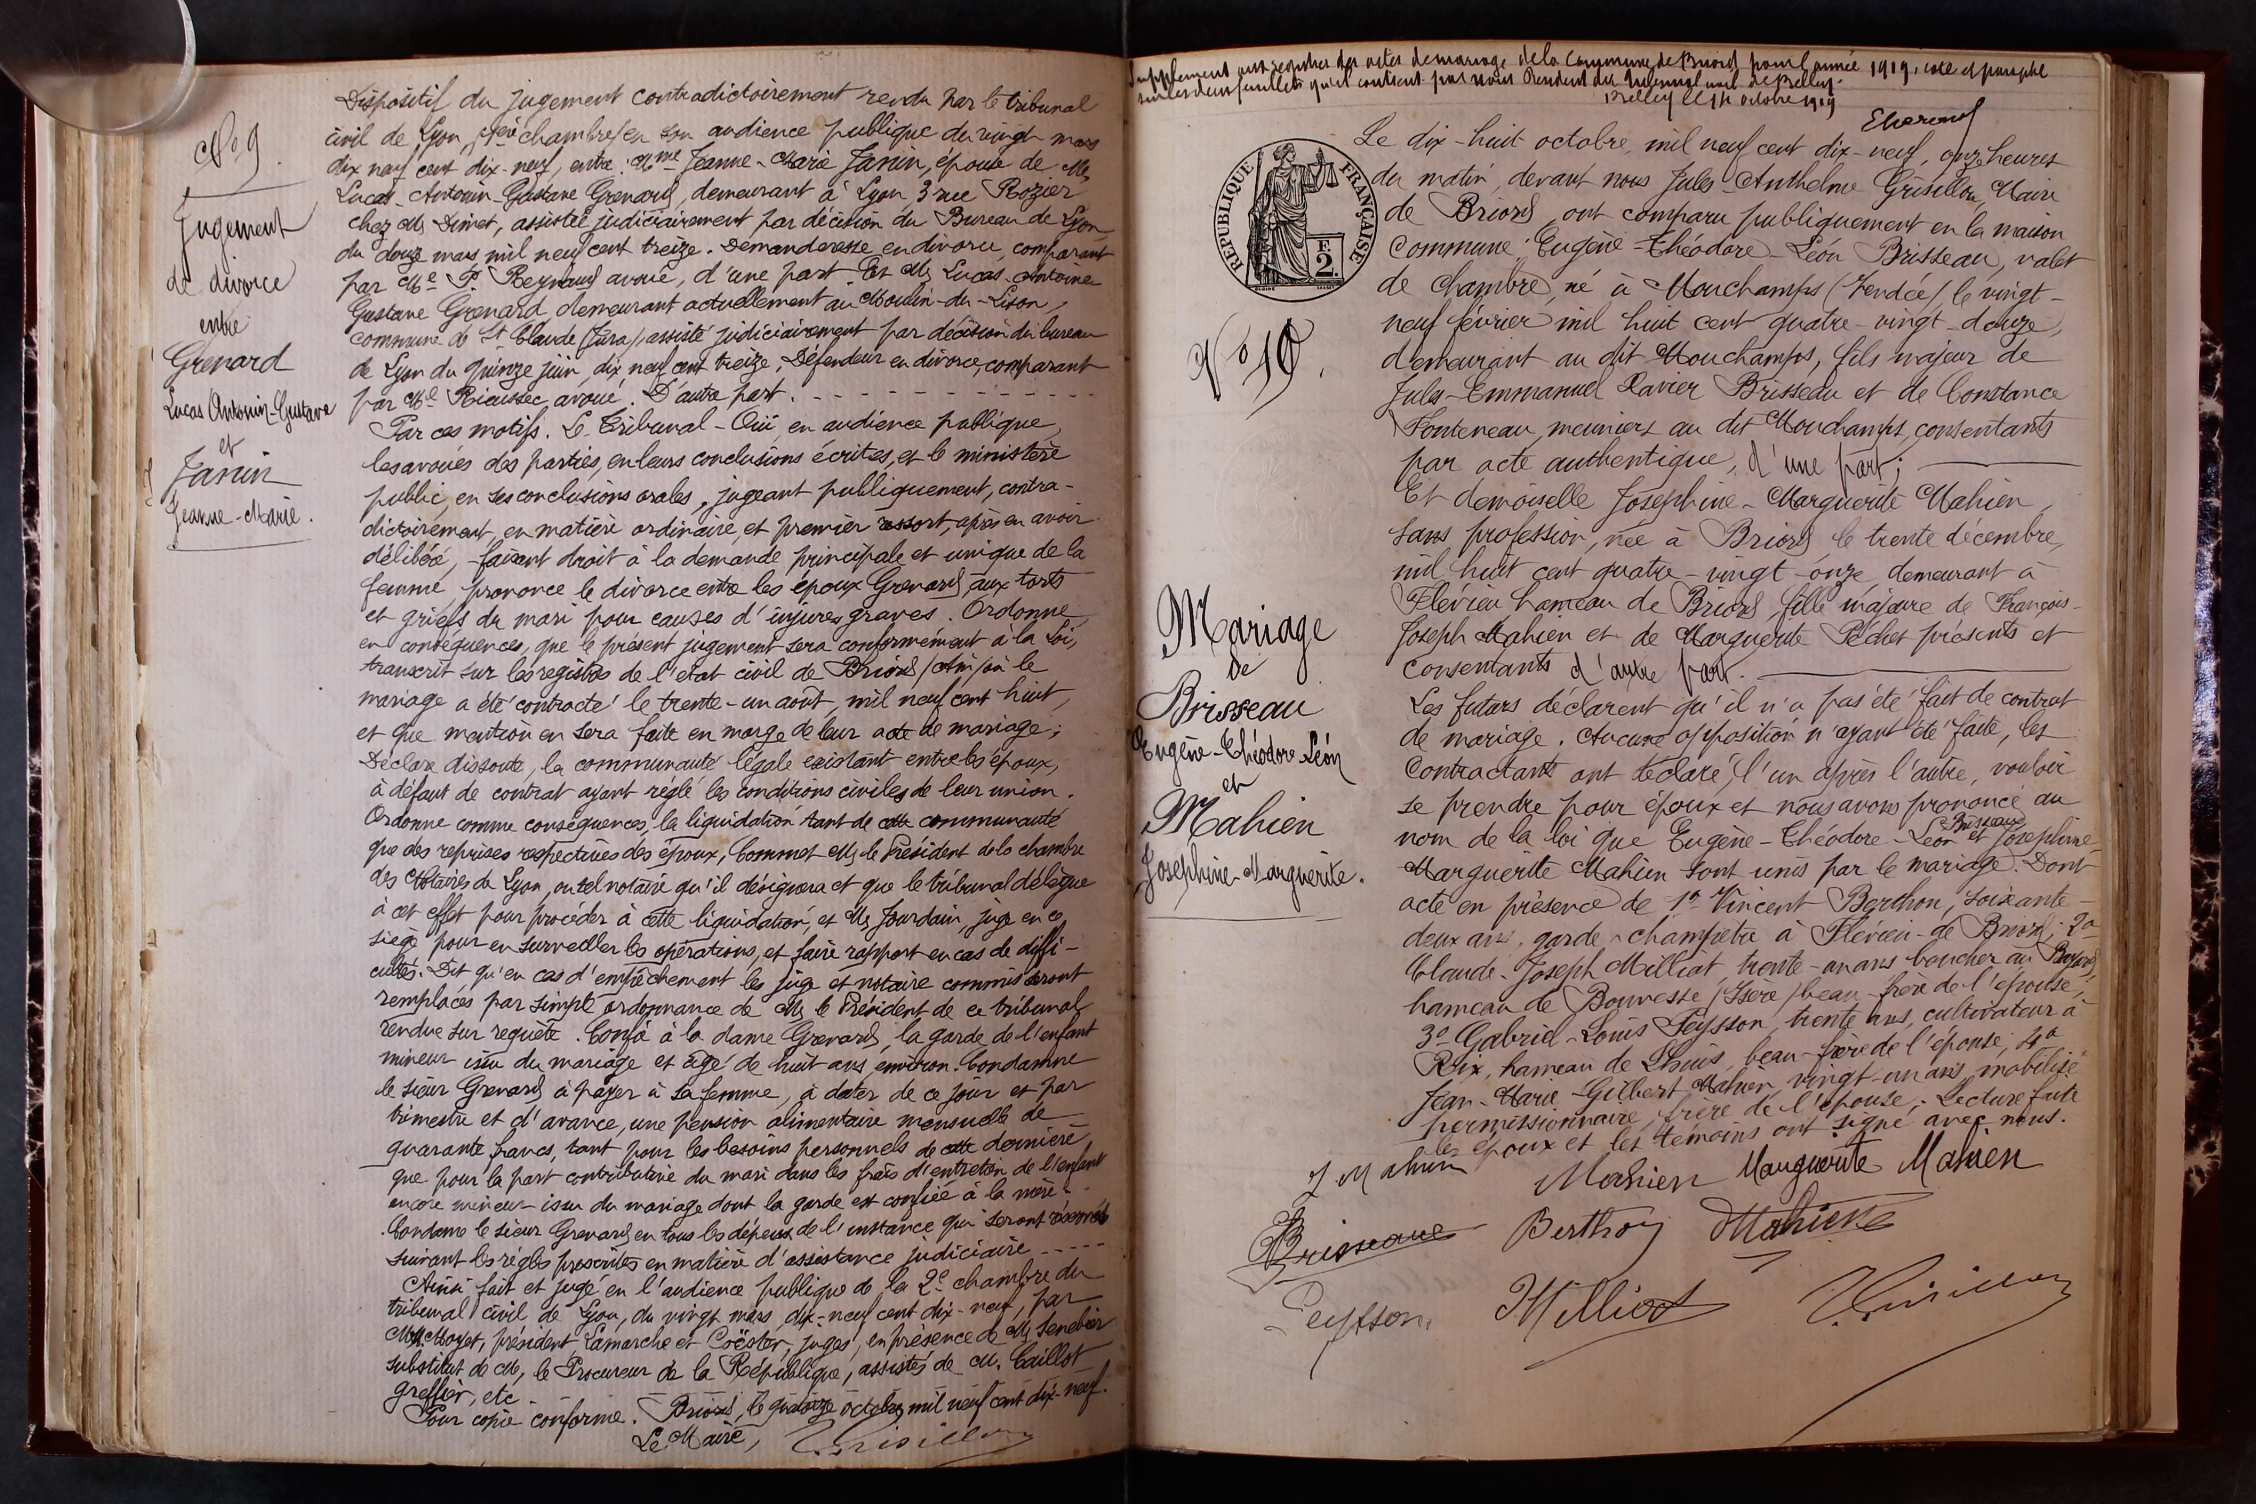 No 9.
Jugement
de divorce
entre
Grenard
Lucas Antonin-Gustave
et
Janin
Jeanne-Marie.
Dispositif du jugement contradictoirement rendu par le tribunal
civil de Lyon, chambre, en son audience publique du vingt mars
dix neuf cent dix-neuf, entre: Mme Jeanne-Marie Janin, épouse de M.
Lucas-Antonin-Gustave Grenard, demeurant à Lyon 3 rue Rozier
chez M. Dimet, assistée judiciairement par décision du Bureau de Lyon
du douze mars mil neuf cent treize. Demanderesse en divorce, comparant
par Me P. Reynaud avoué, d'une part Et M. Lucas-Antoine
Gustave Grenard, demeurant actuellement au Moulin-du-Lison,
commune de St Claude (Jura), assisté judiciairement par décision du bureau
de Lyon du quinze juin, dix neuf cent treize, Défendeur en divorce, comparant
par Me Rieussec, avoué. D'autre part.
Par ces motifs. Le Tribunal - Ouï en audience publique,
les avoués des parties, en leurs conclusions écrites, et le ministère
public, en ses conclusions orales, jugeant publiquement, contra-
dictoirement, en matière ordinaire, et premier ressort, après en avoir
délibéré, - faisant droit à la demande principale et unique de la
femme, prononce le divorce entre les époux Grenard, aux torts
et griefs du mari pour causes d'injures graves. Ordonne
en conséquences, que le présent jugement sera conformément à la loi,
transcrit sur les registres de l'état civil de Briord (Ain) où le
mariage a été contracté le trente-un août, mil neuf cent huit,
et que mention en sera faite en marge de leur acte de mariage;
Déclare dissoute, la communauté légale existant entre les époux,
à défaut de contrat ayant réglé les conditions civiles de leur union.
Ordonne comme conséquences, la liquidation tant de cette communauté
que des reprises respectives des époux, Commet M. le Président de la chambre
des Notaires de Lyon, ou tel notaire qu'il désignera et que le tribunal délègue
à cet effet pour procéder à cette liquidation, et M. Jourdain, juge en ce
siège pour en surveiller les opérations, et faire rapport en cas de diffi-
cultés. Dit qu'en cas d'empêchement les juge et notaire commis seront
remplacés par simple ordonnance de M. le Président de ce tribunal
rendue sur requête. Confie à la dame Grenard, la garde de l'enfant
mineur issu du mariage et âgé de huit ans environ. Condamne
le sieur Grenard à payer à sa femme, à dater de ce jour et par
trimestre et d'avance, une pension alimentaire mensuelle de
quarante francs, tant pour les besoins personnels de cette dernière,
que pour la part contributoire du mari dans les frais d'entretien de l'enfant
encore mineur issu du mariage dont la garde est confiée à la mère.
Condamne le sieur Grenard en tous les dépens de l'instance qui seront
suivant les règles prescrites en matière d'assistance judiciaire
Ainsi fait et jugé en l'audience publique de la 2e chambre du
tribunal civil de Lyon, du vingt mars, dix-neuf cent dix-neuf, par
MM. Moyet, président, Lamarche et Coëster, juges, en présence de M. Senebier
substitut de M, le Procureur de la République, assistés de M. Caillot
greffier, etc.
Pour copie conforme. Briord, le quatorze octobre mil neuf cent dix-neuf.
Le Maire,
Supplément aux registres des actes de mariage de la Commune de Briord pour l'année 1919, coté et paraphé
sur les deux feuillets qu'il contient par nous Président du Tribunal civil de Belley.
Belley le 14 octobre 1919
RÉPUBLIQUE FRANÇAISE
F.
2.
No 10.
Mariage
de
Brisseau
Eugène-Théodore Léon
et
Mahien
Joséphine-Marguerite.
Le dix-huit octobre, mil neuf cent dix-neuf, onze heures
du matin, devant nous Jules-Anthelme Grisillon, Maire
de Briord, ont comparu publiquement en la maison
commune: Eugène-Théodore-Léon Brisseau, valet
de chambre, né à Mouchamps (Vendée) le vingt-
neuf février mil huit cent quatre-vingt-douze,
demeurant au dit Mouchamps, fils majeur de
Jules-Emmanuel Xavier Brisseau et de Constance
Fonteneau, meuniers au dit Mouchamps, consentants
par acte authentique, d'une part;
Et demoiselle Joséphine-Marguerite Mahien,
sans profession, née à Briord, le trente décembre,
mil huit cent quatre-vingt-onze, demeurant à
Flévieu hameau de Briord, fille majeure de François-
Joseph Mahien et de Marguerite Péchet présents et
consentants d'autre part.
Les futurs déclarent qu'il n'a pas été fait de contrat
de mariage. Aucune opposition n'ayant été faite, les
Contractants ont déclaré, l'un après l'autre, vouloir
se prendre pour époux et nous avons prononcé au
nom de la loi que Eugène-Théodore-Léon Brisseau et Joséphine-
Marguerite Mahien sont unis par le mariage. Dont
acte en présence de 1o Vincent Berthon, soixante-
deux ans, garde-champêtre à Flévieu-de Briord; 2o
Claude-Joseph Milliat, trente-un ans boucher au
hameau de Bouvesse (Isère) beau-frère de l'épouse;
3o Gabriel-Louis Peysson, trente ans, cultivateur à
Rix, hameau de Lhuis, beau-frère de l'épouse; 4o
Jean-Marie-Gilbert Mahien, vingt-un ans, mobilisé
permissionnaire, frère de l'épouse; Lecture faite
les époux et les témoins ont signé avec nous.
J Mahien Mahien Marguerite Mahien
Brisseau Berthon Mahien
Peysson Milliat